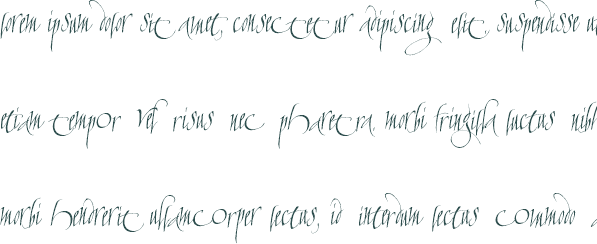 lorem ipsum dolor sit amet, consectetur adipiscing elit, suspendisse ut
etiam tempor vel risus nec pharetra, morbi fringilla luctus nibh
morbi hendrerit ullamcorper lectus, id interdum lectus commodo